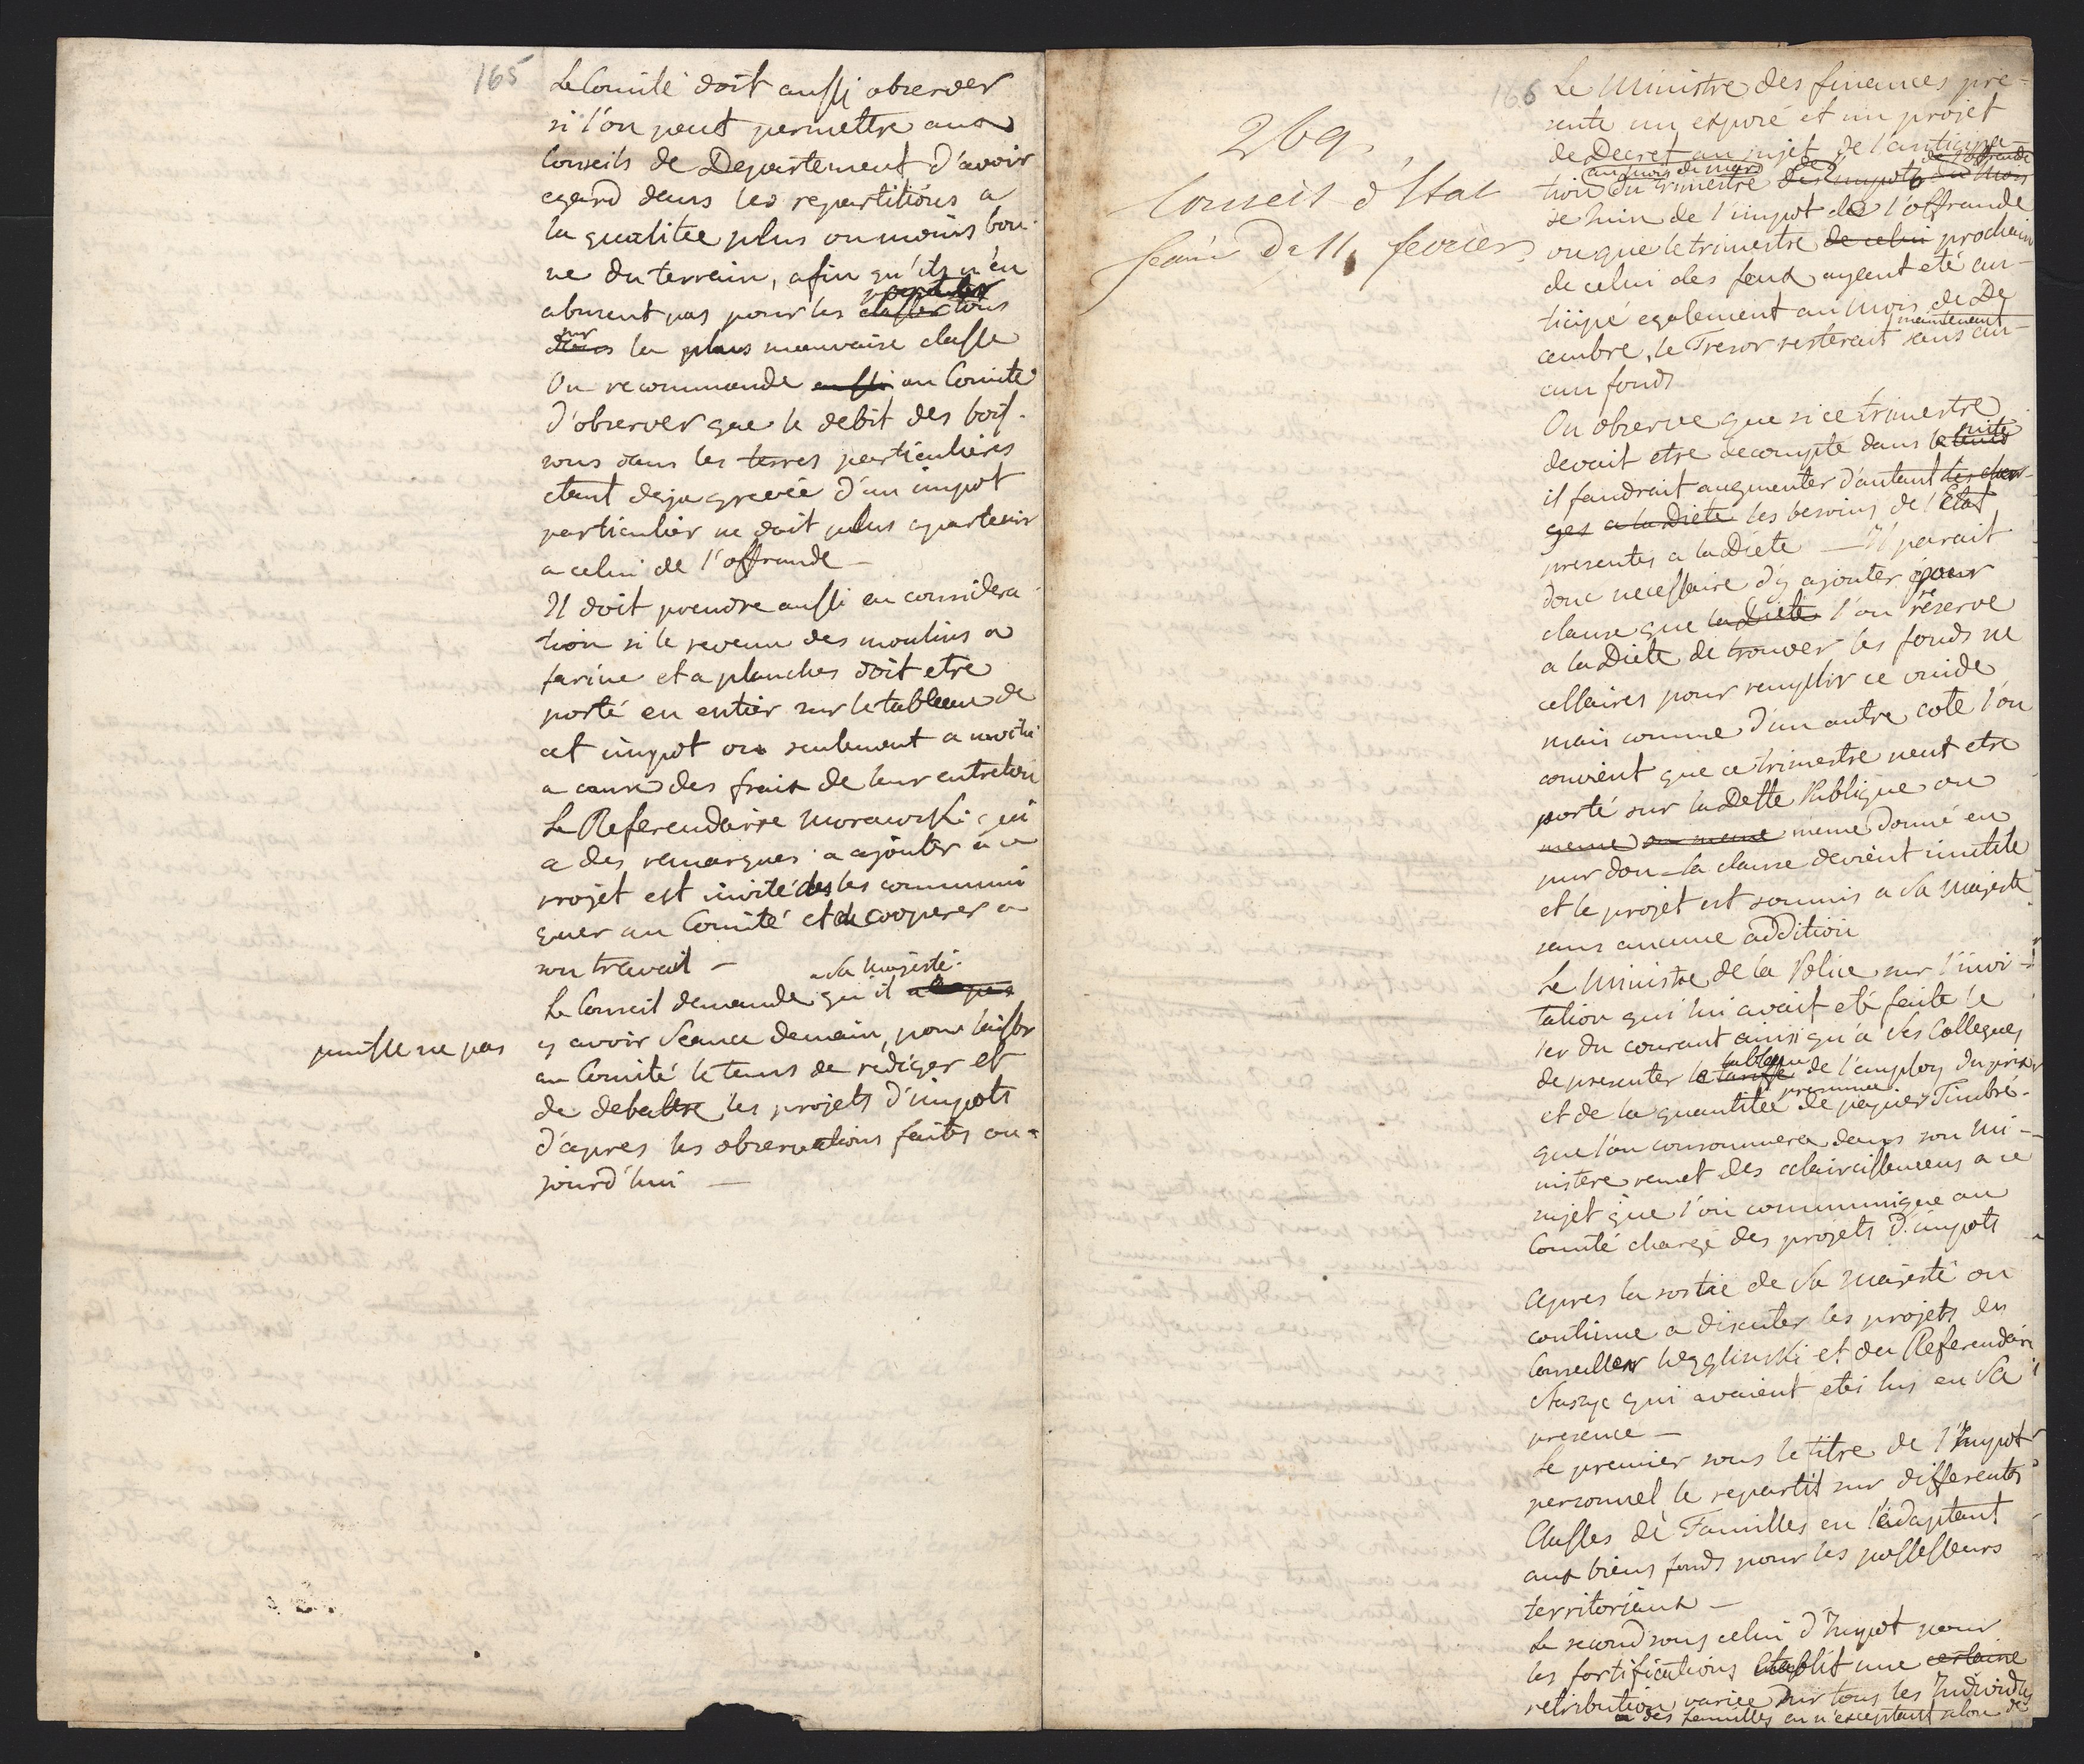 165
Le Comité doit aussi observer
si l'on peut permettre aux
Conseils de Departement d'avoir
egard dans les repartitions a
la qualitée plus ou moins bon-
ne du terrain, afin qu'ils n'en
abusent pas pour les classer tous
sur
dans la plus mauvaise classe
On recommande aussi au Comité
d'observer que le debit des bois-
sons dans les terres particulieres
etant deja grevée d'un impot
particulier ne doit plus apartenir
a celui de l'offrande —
Il doit prendre aussi en considera-
tion si le revenu des moulins a
farine et a planches doit etre
porté en entier sur le tableau de
cet impot ou seulement a moitié
a cause des fraix de leur entretien
Le Referendaire Morawski qui
a des remarques a ajouter a ce
projet est invité des les communi
quer au Comité et de cooperer a
son travail —
a Sa Majesté
Le Conseil demande qu'il
puisse ne pas
y avoir Seance demain, pour laisser
au Comité le tems de rediger et
de debattre les projets d'impots
d'apres les observations faites au-
jourd'hui —
166
269
Conseil d'Etat
Seance Du 11 fevrier
Le Ministre des finances pre-
sente un exposé et un projet
de Decret au sujet de l'anticipa-
au mois de mars de l'offrande
tion du trimestre des impots du mois
de Juin de l'impot de l'offrande
ou que le trimestre de celui prochain
de celui des feux ayant eté an-
ticipé egalement au mois de De
maintenant
cembre, le Tresor resterait sans au-
cun fonds
On observe que si ce trimestre
suite
devait etre decompté dans le tems
il faudrait augmenter d'autant les char-
ges a la Diete les besoins de l'Etat
presentés a la Diete — Il parait
donc necessaire d'y ajouter pour
se
clause que la Diete l'on reserve
a la Diete de trouver les fonds ne
cessaires pour remplir ce vuide
mais comme d'un autre coté l'on
convient que ce trimestre peut etre
porté sur la Dette Publique ou
meme ou meme meme donné en
pur don — la clause devient inutile
et le projet est soumis a Sa Majesté
sans aucune addition
Le Ministre de la Police sur l'invi-
tation qui lui avait eté faite le
1er du courant ainsi qu'a ses Collegues
tableau
de presenter le tariffe de l'employ du prix
presumée
et de la quantitée de papier Timbré
que l'on consommera dans son Mi-
nistere remet des eclaircissemens a ce
sujet que l'on communique au
Comité chargé des projets d'impots
Apres la sortie de Sa Majesté on
continue a discuter les projets du
Conseiller Węgliński et du Referendaire
Staszyc qui avaient etés lus en Sa
presence —
Le premier sous le titre de l'Impot
personnel le repartit sur differentes
Classes de Familles en l'adaptant
aux biens fonds pour les possesseurs
territoriaux —
Le second sous celui d'Impot pour
les fortifications etablit une certaine
retribution variée sur tous les Individus
des familles en n'exceptant